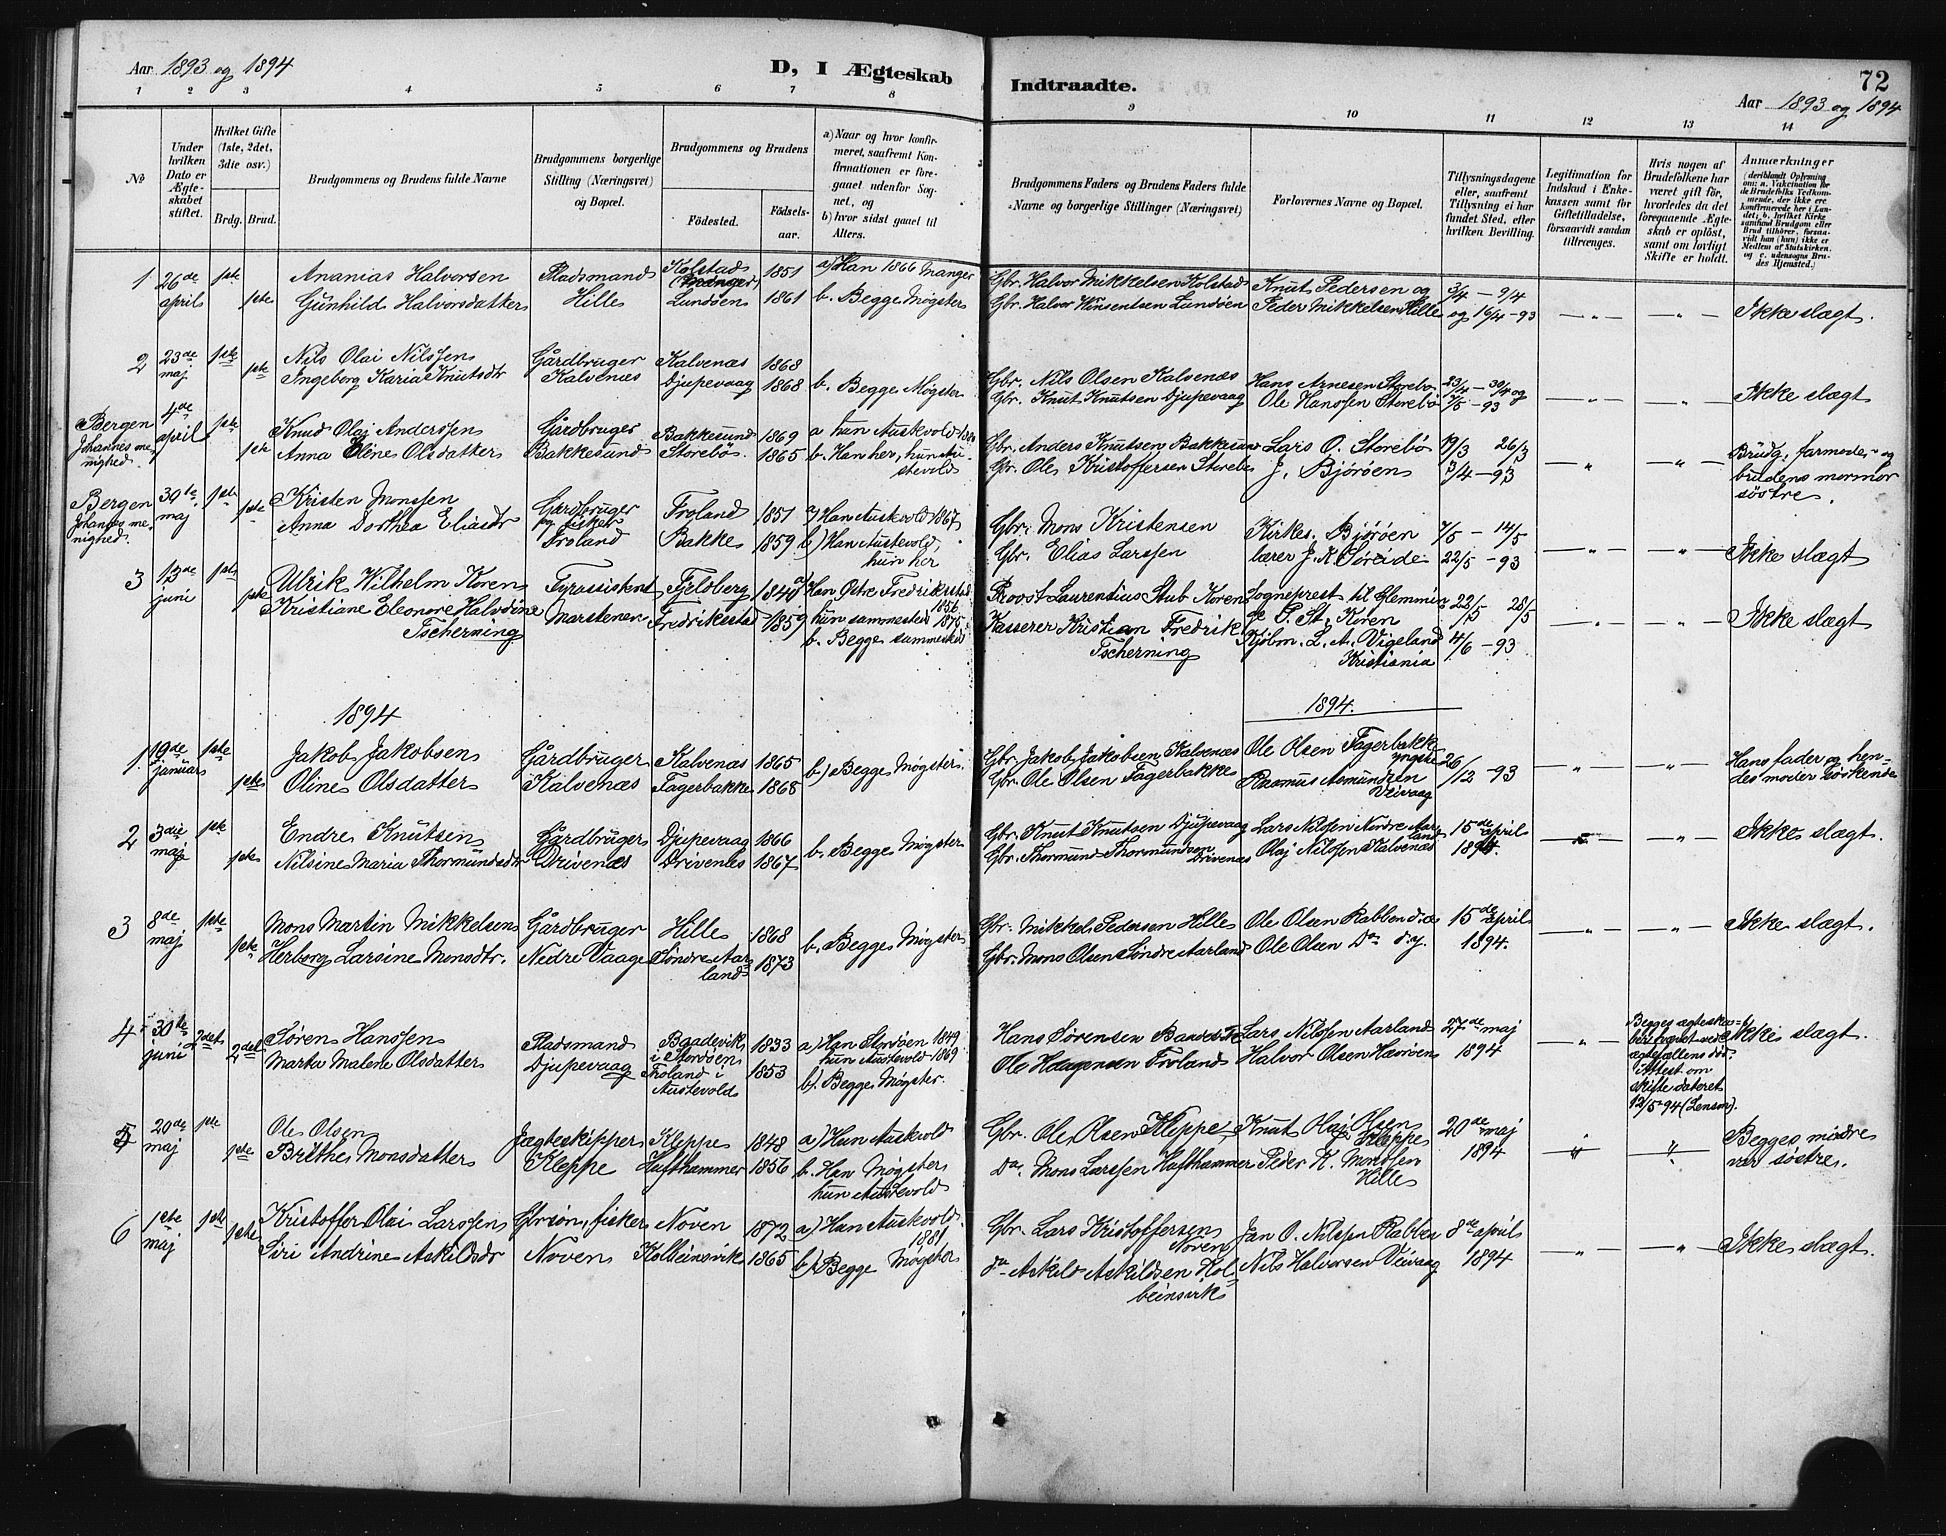 Aar 1893 og 1894
D, I Ægteskab
Indtraadte.
72
Aar 1893 og 1894
1 2 3 4 5 6 7 8 9 10 11 12 13 14
No
Under hvilken Dato er Ægteskabet stiftet.
Hvilket Gifte (1ste, 2det, 3die osv.)
Brdg. Brud.
Brudgommens og Brudens fulde Navne
Brudgommens borgerlige Stilling (Næringsvei) og Bopæl.
Brudgommens og Brudens
Fødested.
Fødselsaar.
a) Naar og hvor konfirmeret, saafremt Konfirmationen er foregaaet udenfor Sognet, og
b) hvor sidst gaaet til Alters.
Brudgommens Faders og Brudens Faders fulde Navne og borgerlige Stillinger (Næringsvei)
Forlovernes Navne og Bopæl.
Tillysningsdagene eller, saafremt Tillysning ei har fundet Sted, efter hvilken Bevilling.
Legitimation for Indskud i Enkekassen samt for Giftetilladelse, forsaavidt saadan tiltrænges.
Hvis nogen af Brudefolkene har været gift før, hvorledes da det foregaaende Ægteskab er opløst, samt om lovligt Skifte er holdt.
Anmærkninger
(deriblandt Oplysning om: a. Vakcination for de Brudefolks Vedkommende, der ikke ere konfirmerede her i Landet; b. hvilket Kirkesamfund Brudgom eller Brud tilhører, forsaavidt han (hun) ikke er Medlem af Statskirken, og c. udensogns Brudes Hjemsted.)
1 26de april 1ste Ananias Halvorsen Pladsmand Kolstad (Manger) 1851 a) Han 1866 Manger Gbr. Halvor Mikkelsen Kolstad Knut Pedersen og 3/4 – 9/4
1ste Gunhild Halvorsdatter Hille Lundøen 1861 b. Begge Møgster Gbr. Halvor Lundøen Peder Mikkelsen Hille og 16/4 – 93 — " — — " — Ikke slægt.
2 23de maj 1ste Nils Olai Nilssen Gårdbruger Kalvenæs 1868 Gbr. Nils Olsen Kalvenæs Hans Arnesen Storebø 23/4 – 30/4 og
1ste Ingeborg Karia Knutsdtr Kalvenæs Djupevaag 1868 b. Begge Møgster Gbr. Knut Knutsen Djupevaag Ole Hanssen Storebø 7/5 – 93 — " — — " — Ikke slægt
Bergen Johannes menighed. 4de april 1ste Knud Olaj Anderssen Gårdbruger Bakkesund 1869 a hun Austevold Gbr. Anders Knutsen Bakkesund Lars O. Storebø 19/3 26/3
1ste Anna Eline Olsdatter Bakkesund Storebø. 1865 b. Han her, hun Austevold Gbr. Ole Kristoffersen Storebø J. Bjørøen 3/4 – 93 — " — — " — Brudg. farmoder og brudens mormor søstre.
Bergen Johannes menighed. 30te maj 1ste Kristen Monssen Gårdbruger og fisker Froland 1851 a) Han Austevold 1867 Gbr. Mons Kristensen Kirkes. Bjørøen 7/5 – 14/5
1ste Anna Dorthea Eliasdtr Troland Bakke 1859 b) Han Austevold, hun her Gbr. Elias Larssen lærer J. K. Søreide 22/5 – 93 — " — — " — Ikke slægt
3 13de juni 1ste Ulrik Wilhelm Koren Fyrassistent Fjeldberg 1840 a) Han Østre Fredrikstad 1856 Provst Laurentius Stub Koren Sogneprest til Glemminge P. St. Koren 22/5 28/5
1ste Kristiane Eleonore Halvdine Tscherning Marstenen Fredrikstad 1859 hun sammested 1875 b. Begge sammested Kasserer Kristian Fredrik Tscherning Kjøbm. L. A. Vigeland Kristiania 4/6 – 93 — " — — " — Ikke slægt
1894 1894.
1. 19de januar 1ste Jakob Jakobsen Gårdbruger Kalvenæs 1865 b) Begge Møgster. Gbr. Jakob Jakobsen Kalvenæs Ole Olsen Fagerbakke yngste 26/12 – 93
1ste Oline Olsdatter Kalvenæs Fagerbakke 1868 Gbr. Ole Olsen Fagerbakke Rasmus Asmundsen Veivaag — " — — " — Hans fader og hendes moder søskende
2 3die maj 1ste Endre Knutsen Gårdbruger Djupevaag 1866 b. Begge Møgster Gbr. Knut Knutsen Djupevaag Lars Nilssen Nordre Aarland 15de april
1ste Nilsine Maria Thormundsdtr Drivenes Drivenes 1867 Gbr. Thormund Thormundsen Drivenes Olaj Nilssen Kalvenæs 1894. — " — — " — Ikke slægt.
3 8de maj 1ste Mons Martin Mikkelsen Gårdbruger Hille 1868 b. Begge Møgster Gbr. Mikkel Pedersen Hille Ole Olsen Rabben d. æ. 15de april
1ste Herborg Larsine Monsdtr. Nedre Vaage Søndre Aarland 1873 Gbr. Mons Olsen Søndre Aarland Ole Olsen Do d. y. 1894. — " — — " — Ikke slægt.
4 30te juni 2det Søren Hanssen Pladsmand Baadevik i Stordøen 1833 a) Han Storøen 1849 hun Austevold 1869 Hans Sørensen Lars Nilssen Aarland 27de maj
2det Marta Malene Olsdatter Djupevaag Froland i Austevold 1853 b). Begge Møgster. Ole Haagensen Froland Halvor Olsen 1894 — " — Begges ægteskaber hævet ved ægtefællens død. Attest om skifte dateret 12/5-94 (Lensm). Ikke slægt.
5 20de maj 1ste Ole Olsen Jægteskipper Kleppe 1848 a) Hun Austevold Gbr. Ole Olsen Kleppe Knut Olaj Olsen Kleppe 20de maj
1ste Brithe Monsdatter Kleppe Hufthammer 1856 b. Han Møgster hun Austevold do. Mons Larssen Hufthammer Peder K. Monssen Hille 1894 — " — — " — Begges mødre var søstre.
6 1ste maj 1ste Kristoffer Olai Larssen Gbrsøn, fisker Noven 1872 a) Han Austevold. 1881 Gbr. Lars Kristoffersen Noven Jan O. Nilssen Rabben 8de april
1ste Siri Andrine Askildsdr Noven Kolbeinsvik 1865 b) Begge Møgster do Askild Askildsen Kolbeinsvik Nils Halvorsen Veivaag 1894 — " — — " — Ikke slægt.